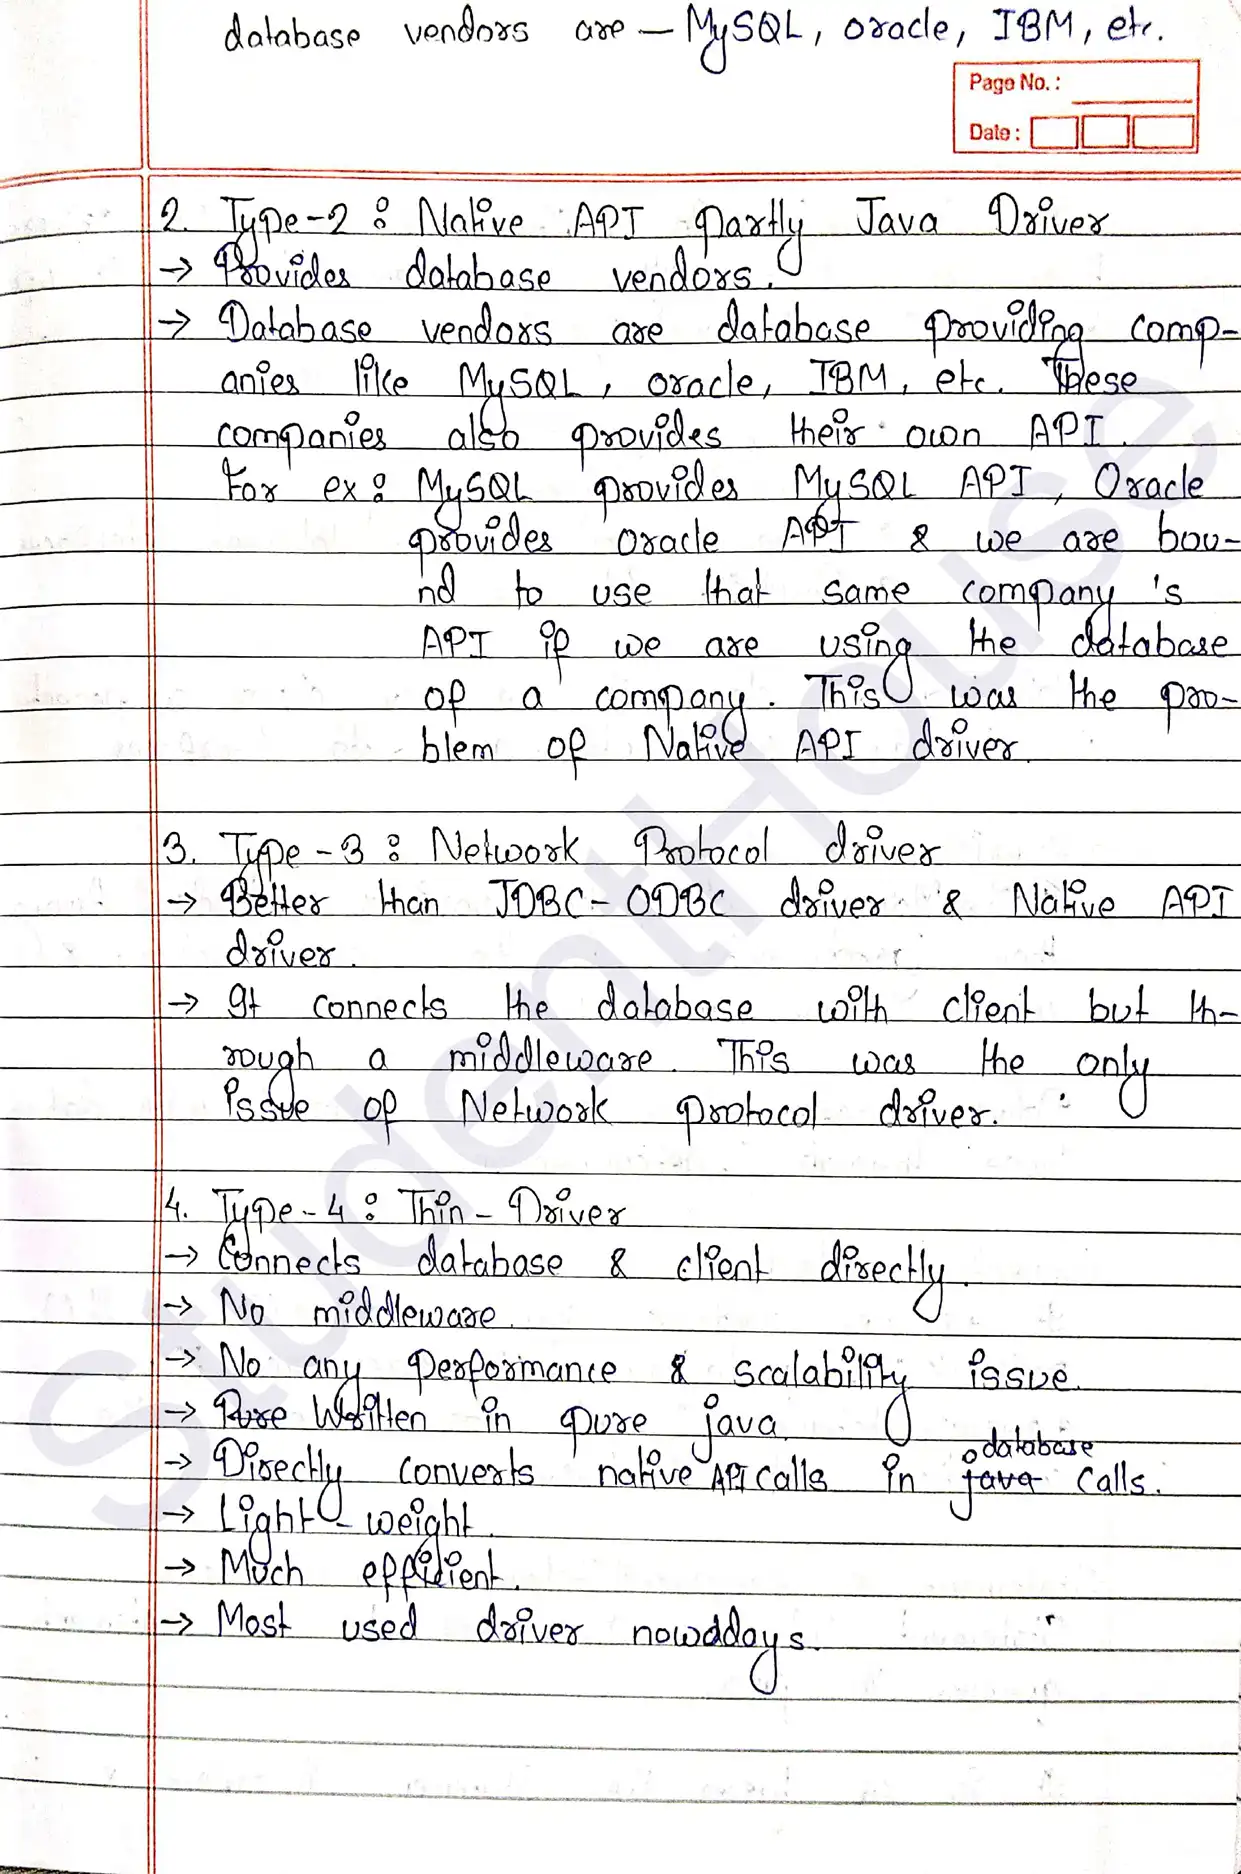 database vendors are — MySQL, oracle, IBM, etc.
Page No. :
Date :
2. Type-2 : Native API partly Java Driver
→ Provides database vendors.
→ Database vendors are database providing comp-
anies like MySQL, oracle, IBM, etc. These
companies also provides their own API.
For ex : MySQL provides MySQL API, Oracle
provides oracle API & we are bou-
nd to use that same company's
API if we are using the database
of a company. This was the pro-
blem of Native API driver.
3. Type-3 : Network Protocol driver
→ Better than JDBC-ODBC driver & Native API
driver.
→ It connects the database with client but th-
rough a middleware. This was the only
issue of Network protocol driver.
4. Type-4 : Thin-Driver
→ Connects database & client directly.
→ No middleware.
→ No any performance & scalability issue.
→ Pure Written in pure java.
database
→ Directly converts native API calls in java calls.
→ Light-weight.
→ Much efficient.
→ Most used driver nowadays.
StudentHouse